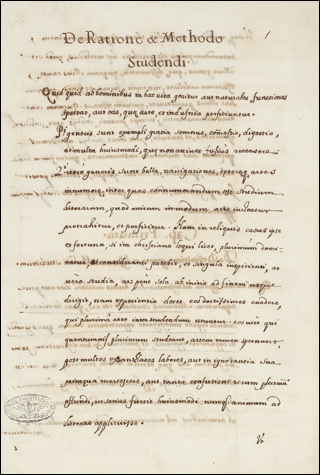 De Ratione & Methodo
Studendi
Quid quid ab hominibus in hac vita geritur aut naturales functiones
spectat, aut eas, quæ arte, et industria perficiuntur.
Pi generis sunt exempli gratia somnus, comestio, digestio,
et multa huiusmodi, quæ non a nime fusius recensere
vero generis sunt bella, navigationes, cæteræq artes
innumeræ, inter quas connumerandum est studium
litterarum, quod mirum in modum arte inchoatur
protrahitur, et perficitur. Nam in reliquis casus ipse
et fortuna, si ita christiano loqui licet, plurimum domi-
natur, ut consideranti patebit, et singula inspicienti, at
vero studia, ars pene sola ab initio ad finem usque
dirigit, nam experientia docet eos doctissimos evadere,
qui plurima arte inter studendum utuntur. eos vero qui
quantumvis plurimum student, artem tamen spernunt
post multos exantlatos labores, aut in ignorantia sua
marcescere, aut tanta confusione rerum
effundi, ut satius fuerit huiusmodi, numq animum ad
litteras applicuisse.
Vt
1